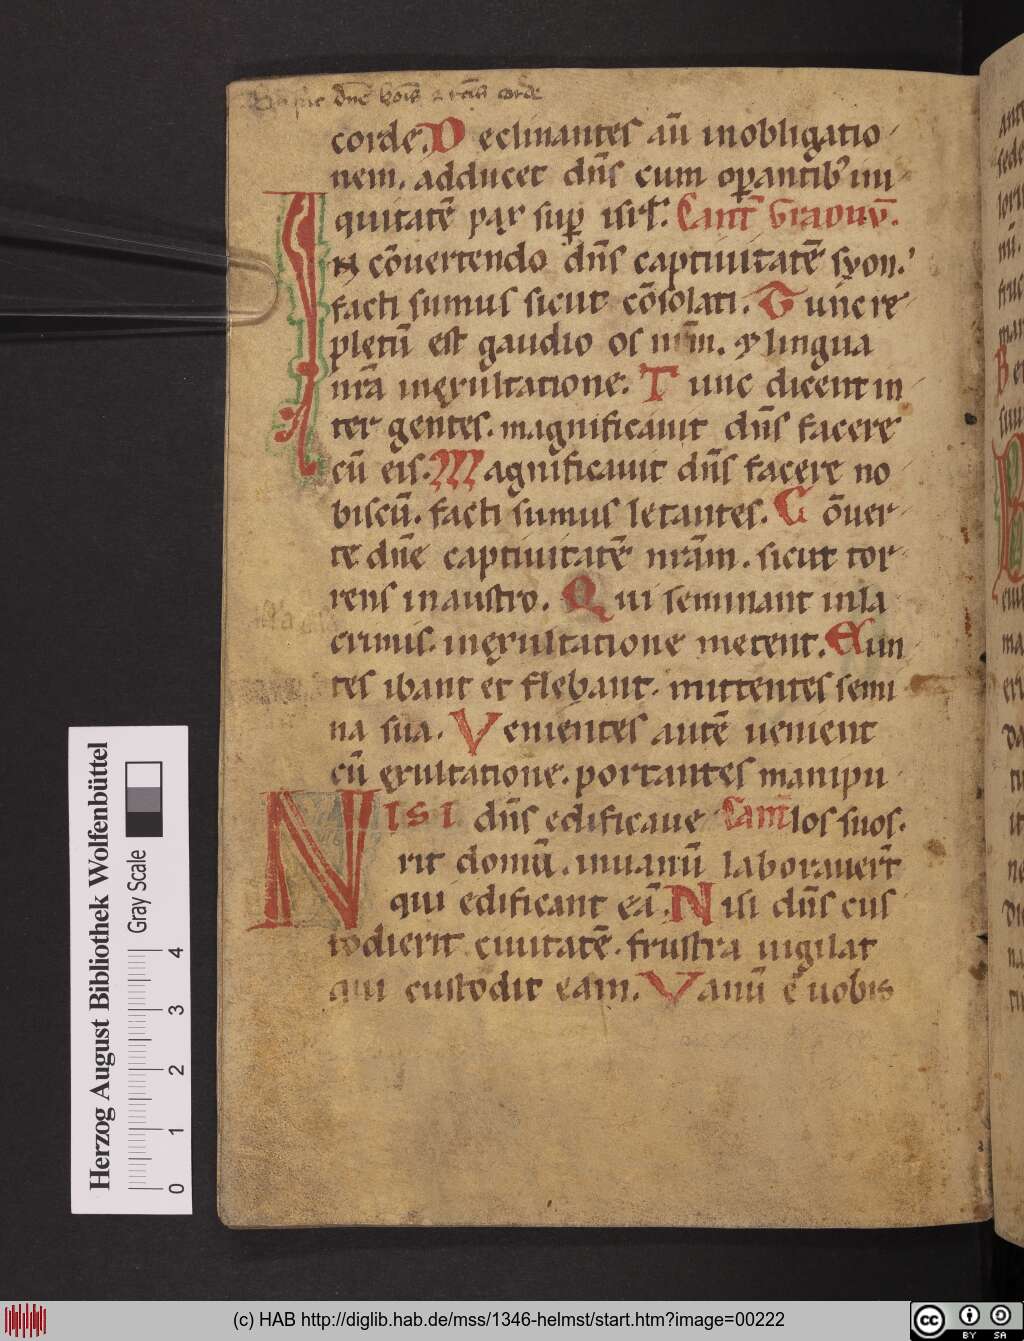 dn̄e bois ⁊ rc̄is corde
corde. Declinantes aū inobligatio
nem. adducet dn̄s cum oꝑantib' ini
quitatē pax suꝑ isrl̄. Cant̄ Graduū.
IN cōuertendo dn̄s captiuitatē syon.
facti sumus sicut cōsolati. Tunc re
pletū est gaudio os nr̄m. ⁊ lingua
nr̄a inexultatione. Tunc dicent in
ter gentes. magnificauit dn̄s facere
cū eis. Magnificauit dn̄s facere no
biscū. facti sumus letantes. Cōuer
te dn̄e captiuitatē nr̄am. sicut tor
rens inaustro. Qui seminant inla
crimis. inexultatione metent. Eun
tes ibant et flebant. mittentes semi
na sua. Venientes autē uenient
cū exultatione. portantes manipu
NISI dn̄s edificaue Cant̄ los suos.
rit domū. inuanū laborauer̄t
qui edificant eā. Nisi dn̄s cus
todierit ciuitatē. frustra uigilat
qui custodit eam. Vanū ē uobis
Herzog August Bibliothek Wolfenbüttel
Gray Scale
0 1 2 3 4
(c) HAB http://diglib.hab.de/mss/1346-helmst/start.htm?image=00222
cc BY SA